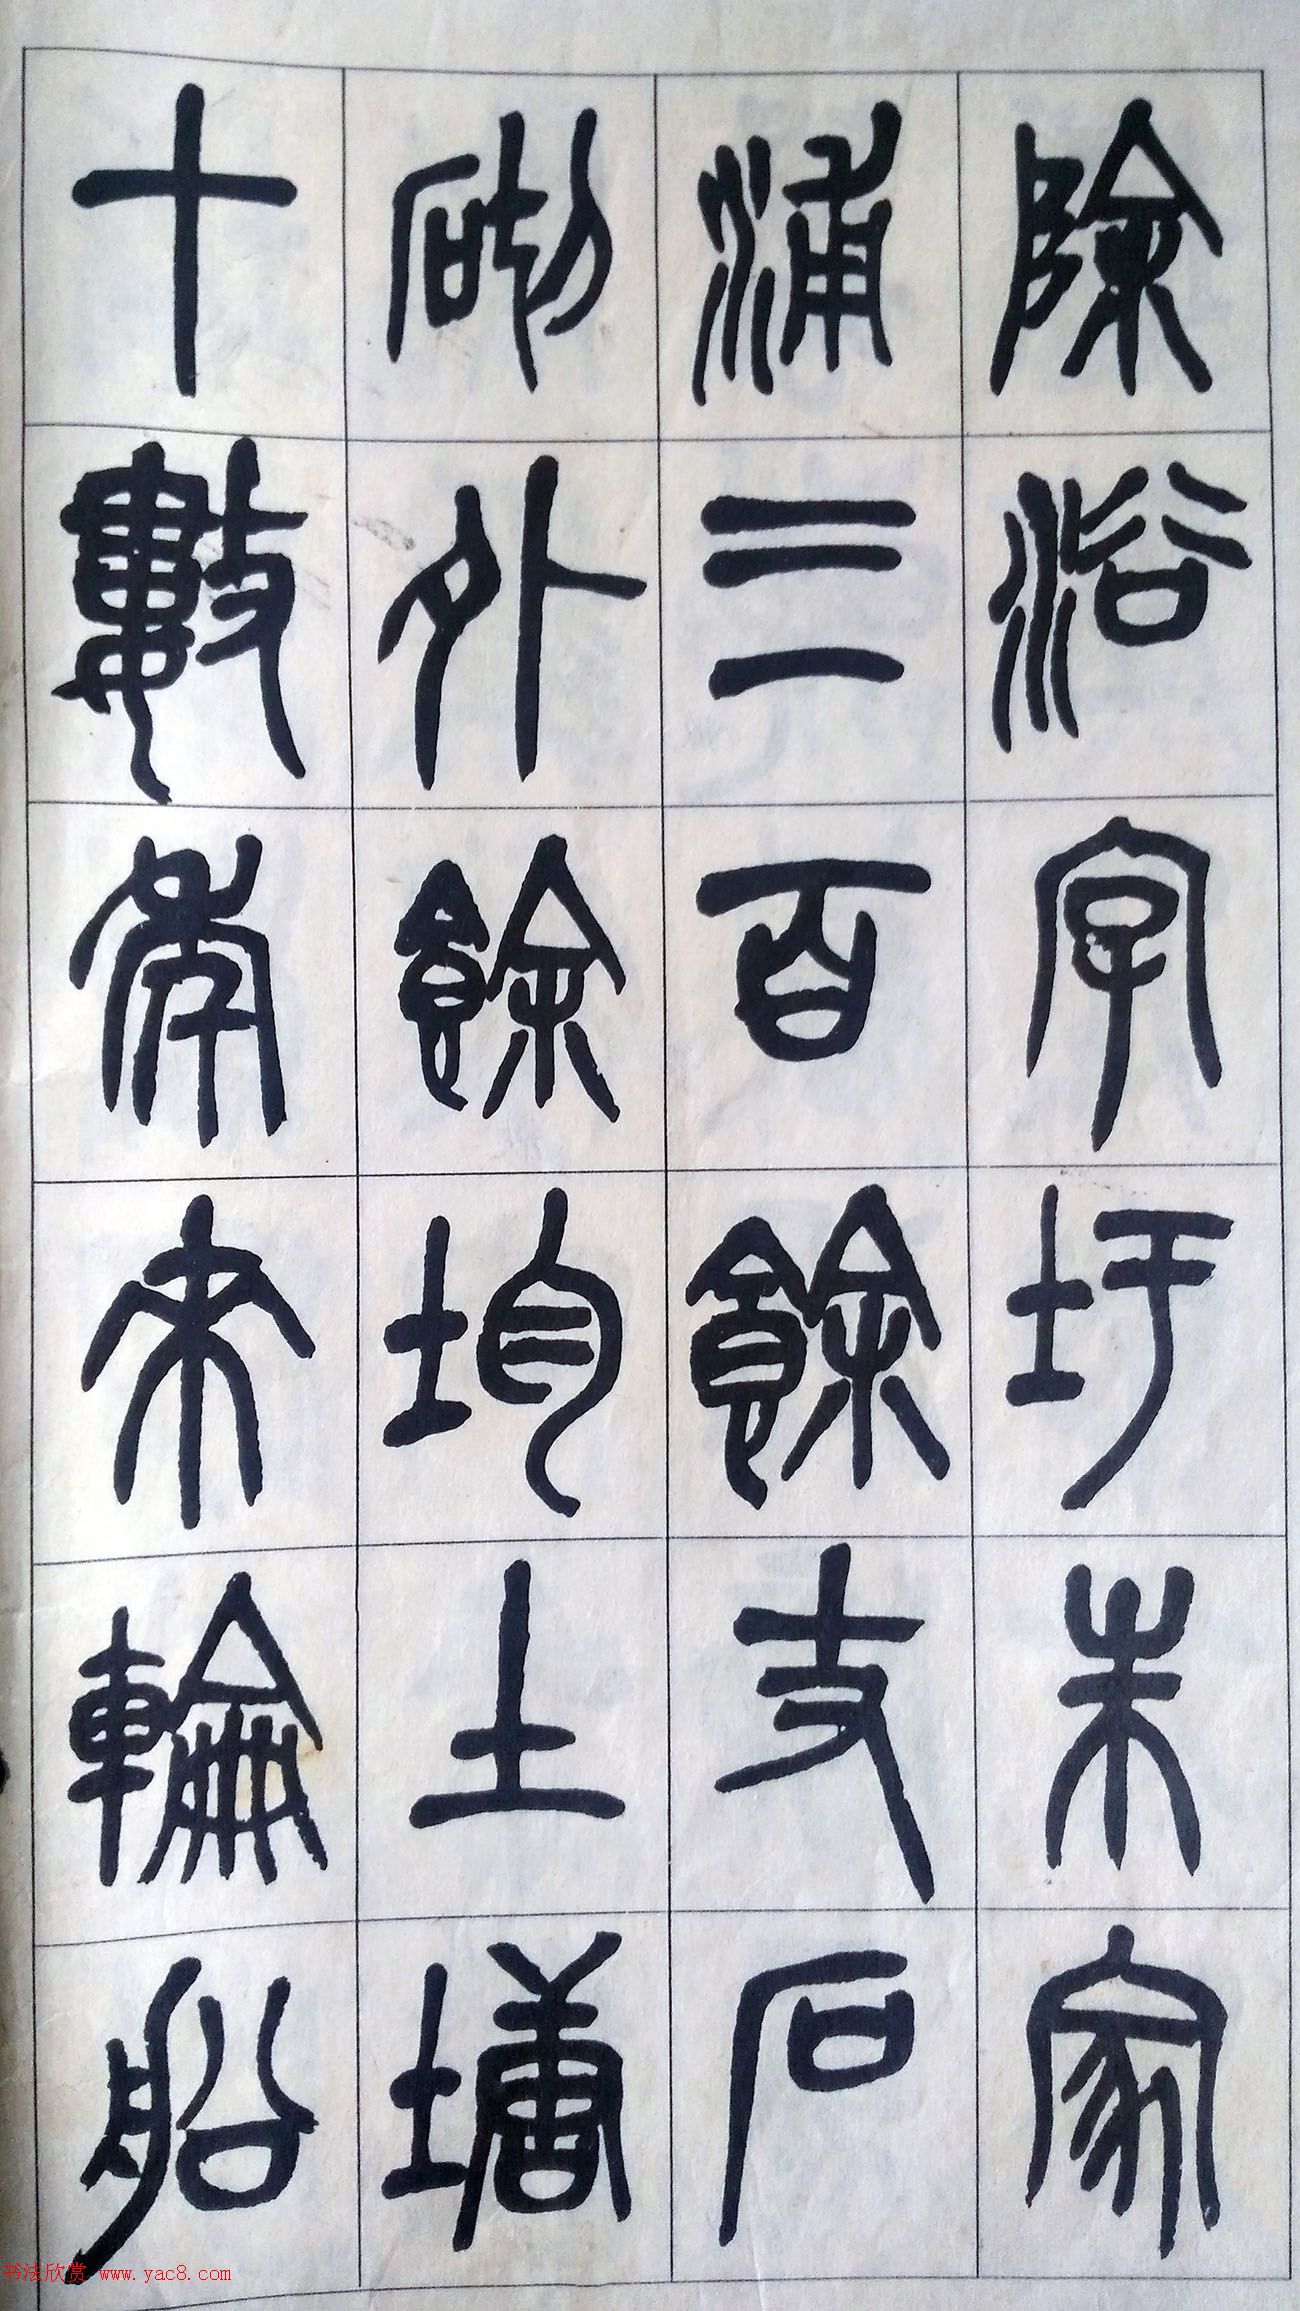 除浴字圩朱家
浦三百餘丈石
砌外餘均土塘
十數年來輪船
书法欣赏 www.yac8.com